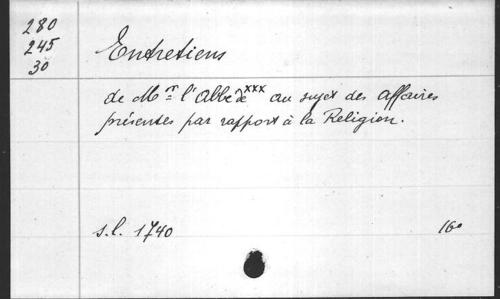 280
245
30
Entretiens
de Mr l'Abbé de xxx au sujet des affaires
présentes par rapport à la Religion.
s.l. 1740
16°